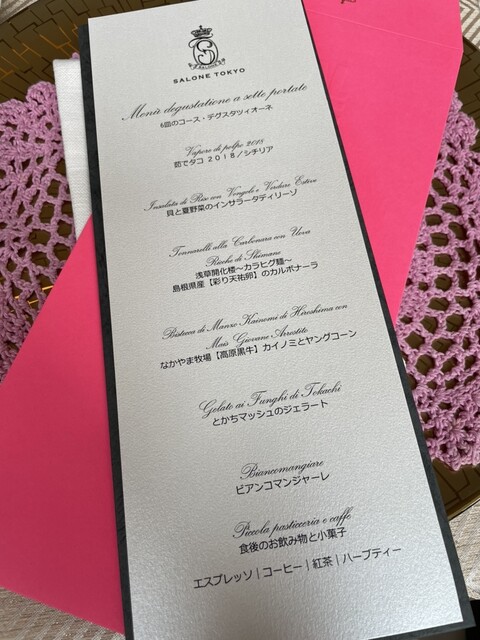 SALONE TOKYO
Menù degustazione a sette portate
6皿のコース・デグスタツィオーネ
Vapore di polpo 2018
茹でタコ 2018/シチリア
Insalata di Riso con Vongole e Verdure Estive
貝と夏野菜のインサラータディリーゾ
Tonnarelli alla Carbonara con Uova
Ricche di Shimane
浅草開化楼～カラヒグ麺～
島根県産【彩り天祐卵】のカルボナーラ
Bistecca di Manzo Kainomi di Hiroshima con
Mais Giovane Arrostito
なかやま牧場【高原黒牛】カイノミとヤングコーン
Gelato ai Funghi di Tokachi
とかちマッシュのジェラート
Biancomangiare
ビアンコマンジャーレ
Piccola pasticceria e caffe
食後のお飲み物と小菓子
エスプレッソ|コーヒー|紅茶|ハーブティー